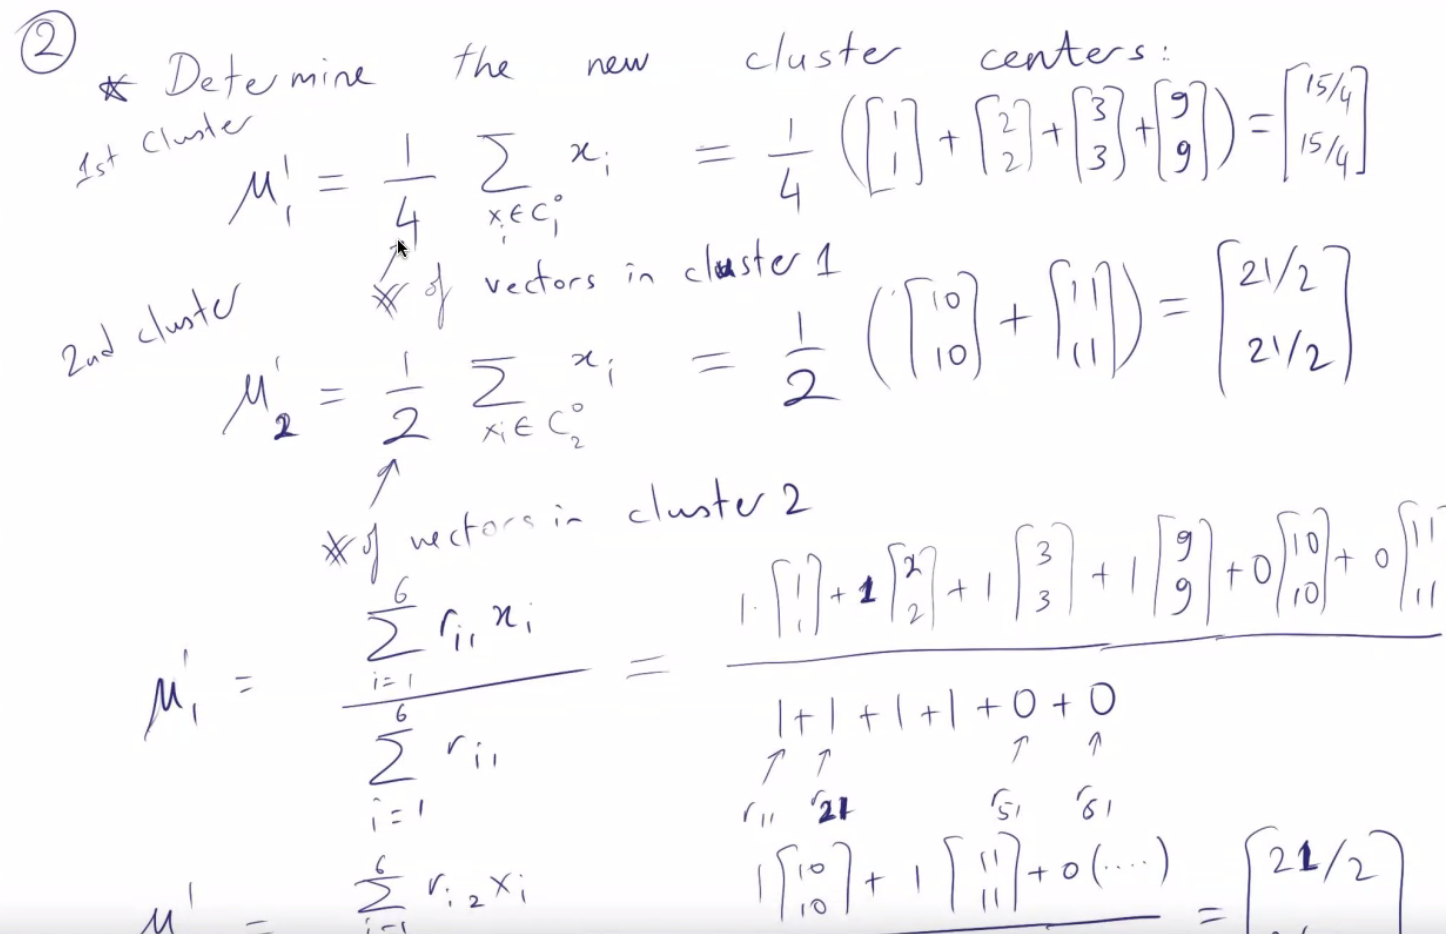 ② * Determine the new cluster centers:
1st Cluster
μ₁¹ = 1/4 ∑_{xᵢ∈C₁⁰} xᵢ = 1/4 ([1 1] + [2 2] + [3 3] + [9 9]) = [15/4 15/4]
# of vectors in cluster 1
2nd cluster
μ₂¹ = 1/2 ∑_{xᵢ∈C₂⁰} xᵢ = 1/2 ([10 10] + [11 11]) = [21/2 21/2]
# of vectors in cluster 2
μ₁¹ = ∑_{i=1}^{6} rᵢ₁ xᵢ / ∑_{i=1}^{6} rᵢ₁ = 1·[1 1] + 1[2 2] + 1[3 3] + 1[9 9] + 0[10 10] + 0[11 11] / 1+1+1+1+0+0
r₁₁ r₂₁ r₅₁ r₆₁
μ¹ = ∑_{i=1}^{6} rᵢ₂ xᵢ 1[10 10] + 1[11 11] + 0(....) = [21/2